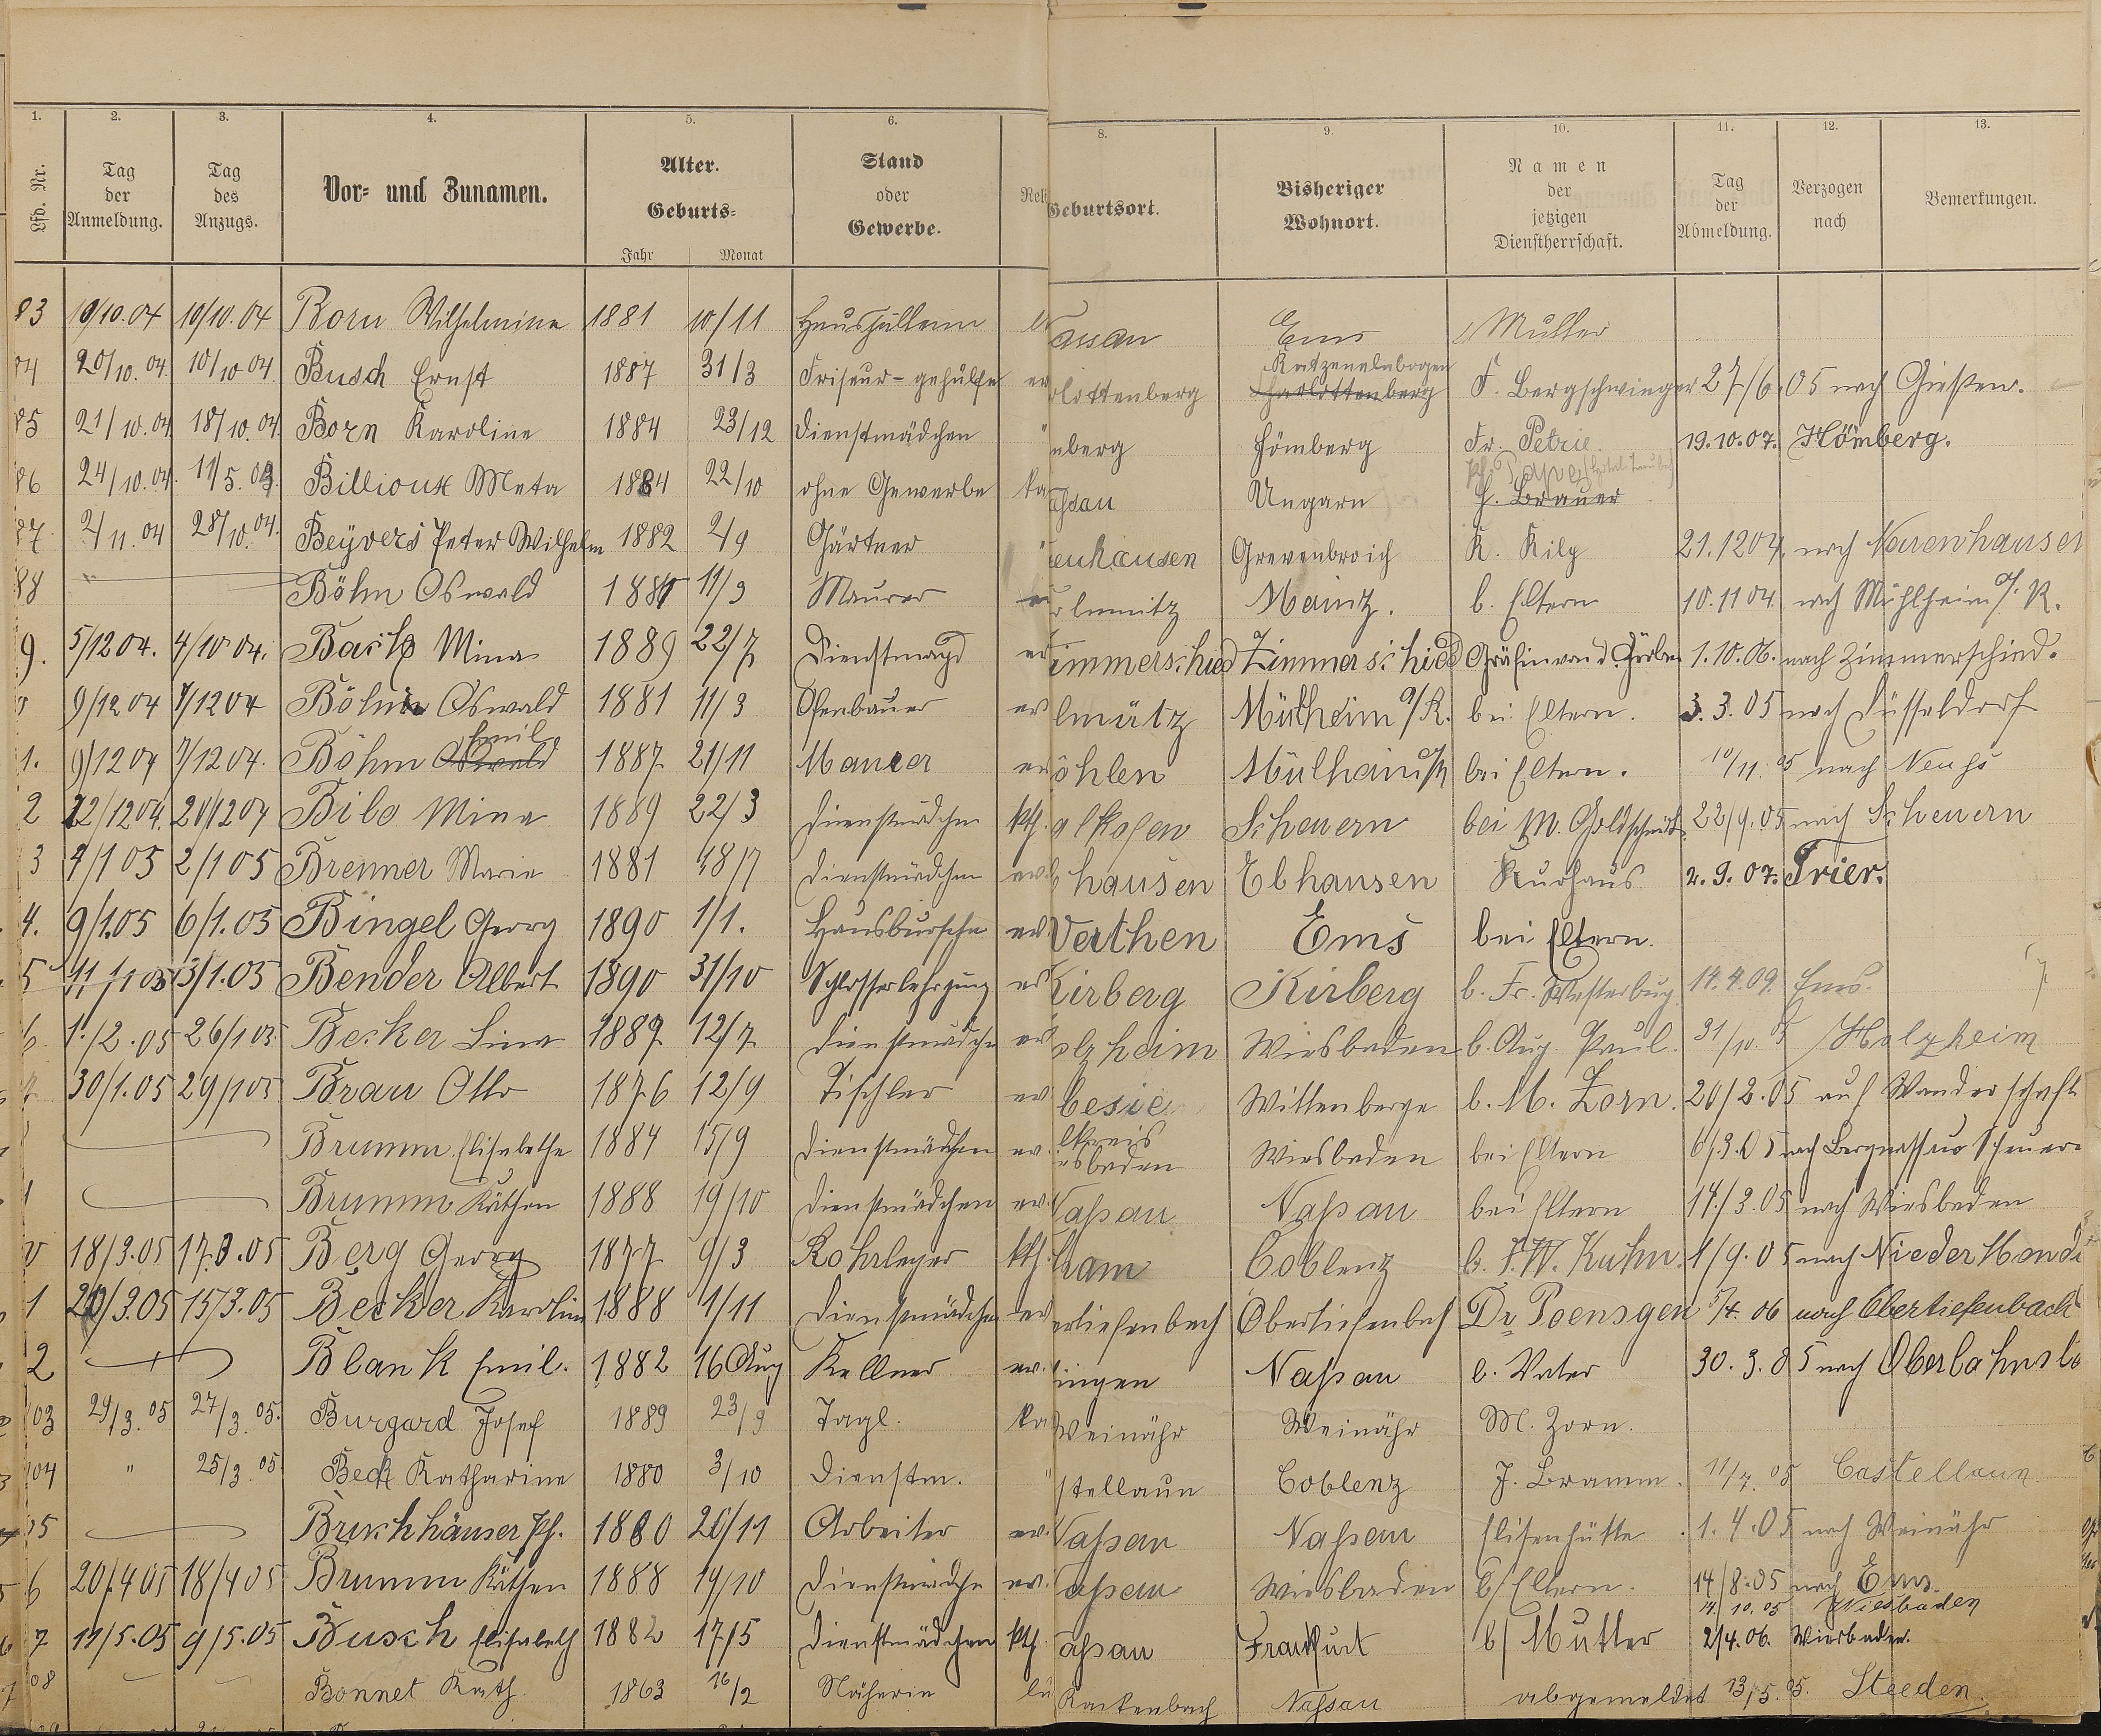 1. 2. 3. 4. 5. 6. 8. 9. 10. 11. 12. 13.
Lfd. Nr. Tag der Anmeldung. Tag des Anzugs. Vor- und Zunamen. Alter. Geburts- Jahr Monat Stand oder Gewerbe. Reli Geburtsort. Bisheriger Wohnort. Namen der jetzigen Dienstherrschaft. Tag der Abmeldung. Verzogen nach Bemerkungen.
83 10/10.04 10/10.04 Born Wilhelmine 1881 10/11 assau Ems Mutter
84 20/10.04. 10/10 04. Busch Ernst 1887 31/3 Friseur-gehülfe ev rlottenberg Katzenelnbogen Charlottenberg F. Bergschwinger 27/6 05 nach Gießen.
85 21/10.04. 18/10.04. Born Karoline 1884 23/12 Dienstmädchen " mberg Hömberg Fr. Petrie 19.10.07. Hömberg.
86 24/10.04. 11/5.03. Billioux Meta 1884 22/10 ohne Gewerbe ka aßau Ungarn H. Brauer
87 2/11.04 28/10.04. Beyvers Peter Wilhelm 1882 2/9 Gärtner " enhausen Grevenbroich K. Kilp 21.1204. nach Neuenhausen
88 " Böhm Oswald 1881 11/3 Maurer Mainz. b. Eltern 10.1104. nach Mühlheim a/R.
9. 5/1204. 4/1004. Mina 1889 22/7 Dienstmagd ev immerschied Zimmerschied Gräfin von d. 1.10.06. nach Zimmerschied.
9/1204 7/1204 Böhm Oswald 1881 11/3 Ofenbauer ev lmütz Mülheim a/R. bei Eltern. 3.3.05 nach Düsseldorf
1. 9/1204 7/1204. Böhm Oswald Emil 1887 21/11 Maurer ev öhlen bei Eltern. 10/11.05 nach Neuhs
2 22/1204. 21/1204 Bibo Mina 1889 22/3 Dienstmädchen kth. Scheuern bei M. Goldschmidt 22/9.05 nach Scheuern
3 4/105 2/105 Brenner Marie 1881 18/7 Dienstmädchen ev. hausen Ebhausen Kurhaus 2.9.07. Trier.
4. 9/1.05 6/1.05 Bingel Georg 1890 1/1. Hausbursche ev Werthen Ems bei Eltern.
5 11/105 3/1.05 Bender Albert 1890 31/10 Schlosserlehrjung ev Kirberg Kirberg b. Fr. Westerburg 14.4.09. Ems.
6. 1./2.05 26/105. Becker Lina 1887 12/7 Dienstmädche ev olzheim Wiesbaden b. Aug. Paul. 31/10.05 Holzheim
7 30/1.05 29/105 Brau Otto 1876 12/9 Tischler ev besie Wittenberge b. M. Zorn. 20/2.05 auf Wanderschaft
Brumm Elisabethe 1884 15/9 Dienstmädchen ev. lkreis sbaden Wiesbaden bei Eltern 6/3.05 nach Bergnassau Scheuern
Brumm Käthen 1888 19/10 Dienstmädchen ev. Naßau Naßau bei Eltern 14/3.05 nach Wiesbaden
18/3.05 17.3.05 Berg Georg 1877 9/3 Rohrleger kth. ham Coblenz b. F.W. Kuhn. 1/9.05 nach Nieder
1 20/3.05 15/3.05 Becker Karolin 1888 1/11 Dienstmädchen ev ertiefenbach Obertiefenbach Dr. Poensgen 5/4.06 nach Obertiefenbach
2 Blank Emil. 1882 16 Aug Kellner ev. ingen Naßau b. Vater 30.3.05 nach Oberlahnst
103 29/3.05 27/3.05. Burgard Josef 1889 23/9 Tagl. ka Weinähr Weinähr M. Zorn.
104 " 25/3.05. Beck Katharine 1880 3/10 Dienstm. " stellaun Coblenz J. Bramm. 11/7.05 Castellaun
05 Bruchhäuser Ph. 1880 20/11 Arbeiter ev. Naßau Naßau Elisenhütte 1.4.05 nach Weinähr
6 20/405 18/405 Brumm Käthen 1888 19/10 Dienstmädche ev. aßau Wiesbaden b/Eltern. 14/8.05 nach Ems.
14/10.05 Wiesbaden
7 11/5.05 9/5.05 Busch Elisabeth 1882 17/5 Dienstmädchen kth aßau Frankfurt b/Mutter 2/4.06. Wiesbaden.
08 Bonnet Kath. 1863 16/2 Näherin lu Nassau abgemeldet 13/5.05. Steeden.